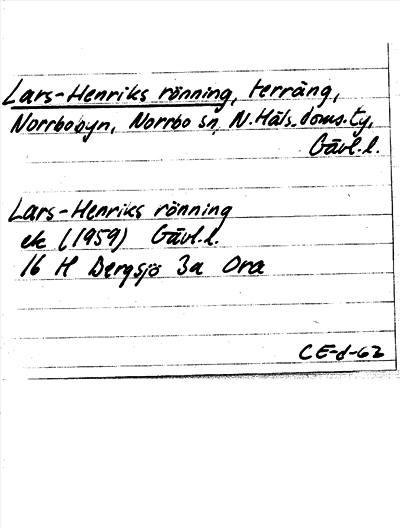 Lars-Henriks rönning, terräng,
Norrbobyn, Norrbo sn, N. Häls. doms. ty,
Gävl. l.
Lars-Henriks rönning
ek (1959) Gävl. l.
16 H Bergsjö 3a Ora
CE-d-62